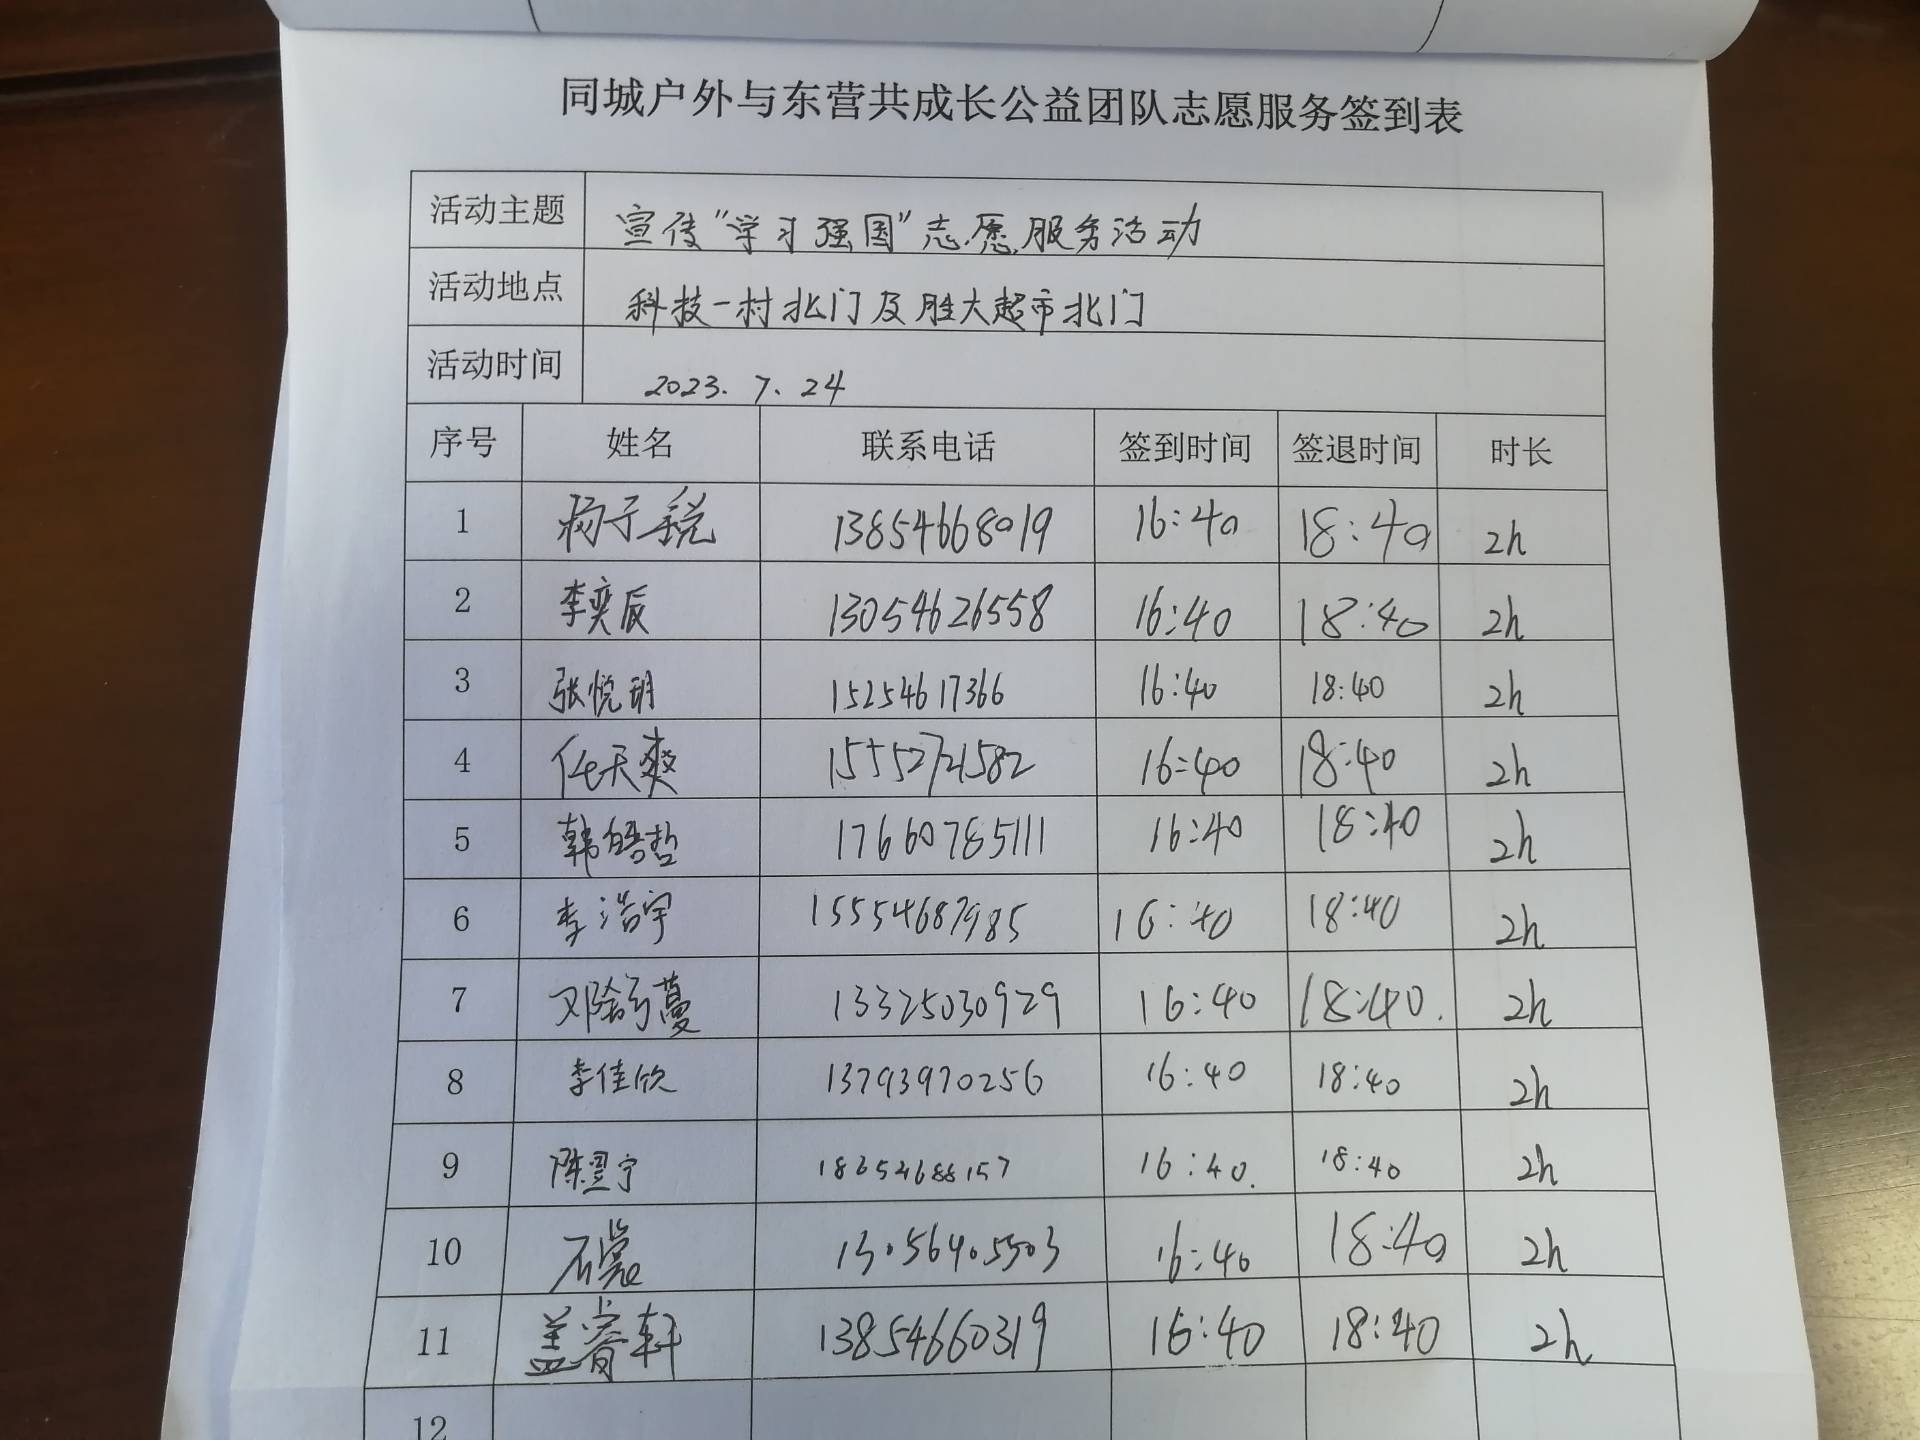 同城户外与东营共成长公益团队志愿服务签到表
活动主题 宣传“学习强国”志愿服务活动
活动地点 科技一村北门及胜大超市北门
活动时间 2023.7.24
序号 姓名 联系电话 签到时间 签退时间 时长
1 杨子 13854668019 16:40 18:40 2h
2 李奕辰 13054626558 16:40 18:40 2h
3 张悦玥 15254617366 16:40 18:40 2h
4 任天爽 15552721582 16:40 18:40 2h
5 韩皓哲 17660785111 16:40 18:40 2h
6 李浩宇 15554687985 16:40 18:40 2h
7 邓 蔓 13325030929 16:40 18:40. 2h
8 李佳欣 13793970256 16:40 18:40 2h
9 陈昱宁 16:40. 18:40 2h
10 石 13056405503 16:40 18:40 2h
11 盖睿轩 13854660319 16:40 18:40 2h
12